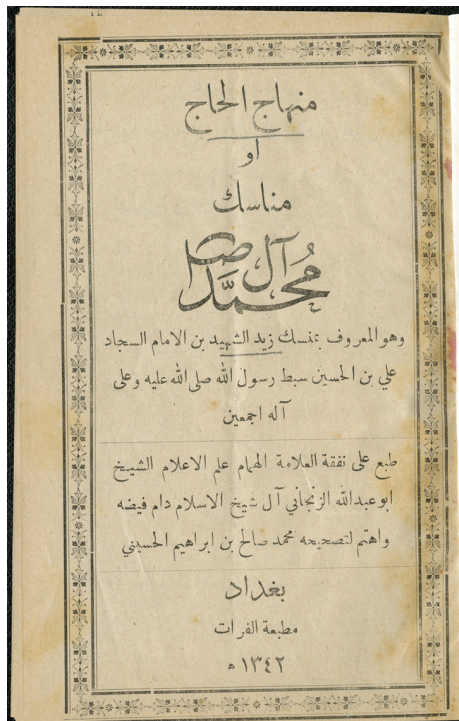 منهاج الحاج
او
مناسك
آل محمد ص
وهو المعروف بمنسك زيد الشهيد بن الامام السجاد
علي بن الحسين سبط رسول الله صلى الله عليه وعلى
آله اجمعين
طبع على نفقة العلامة الهمام علم الاعلام الشيخ
ابو عبدالله الزنجاني آل شيخ الاسلام دام فيضه
واهتم لتصحيحه محمد صالح بن ابراهيم الحسيني
بغداد
مطبعة الفرات
١٣٤٢ ه